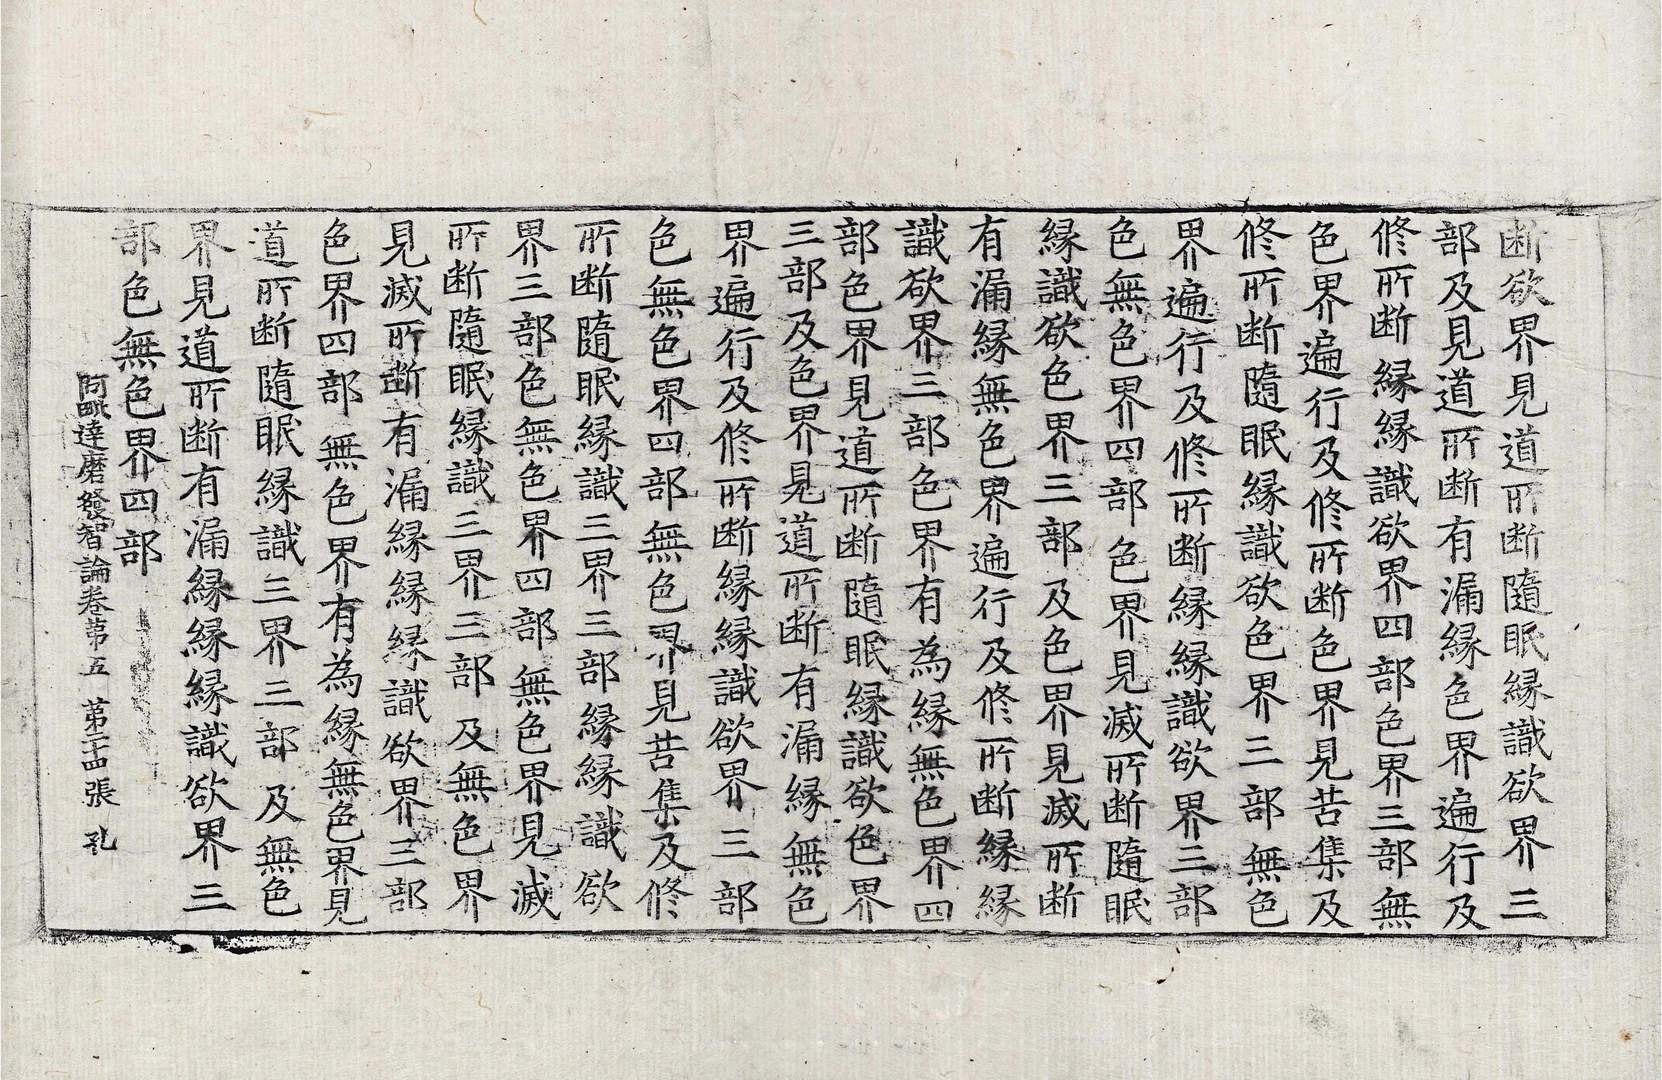 断欲界見道所断隨眠縁識欲界三
部及見道所断有漏縁色界遍行及
修所断縁縁識欲界四部色界三部無
色界遍行及修所断色界見苦集及
修所断隨眠縁識欲色界三部無色
界遍行及修所断縁縁識欲界三部
色無色界四部色界見滅所断隨眠
縁識欲色界三部及色界見滅所断
有漏縁無色界遍行及修所断縁縁
識欲界三部色界有為縁無色界四
部色界見道所断隨眠縁識欲色界
三部及色界見道所断有漏縁無色
界遍行及修所断縁縁識欲界三部
色無色界四部無色界見苦集及修
所断隨眠縁識三界三部縁縁識欲
界三部色無色界四部無色界見滅
所断隨眠縁識三界三部及無色界
見滅所断有漏縁縁縁識欲界三部
色界四部無色界有為縁無色界見
道所断隨眠縁識三界三部及無色
界見道所断有漏縁縁縁識欲界三
部色無色界四部
阿毗達磨發智論卷苐五 苐二十四張 孔